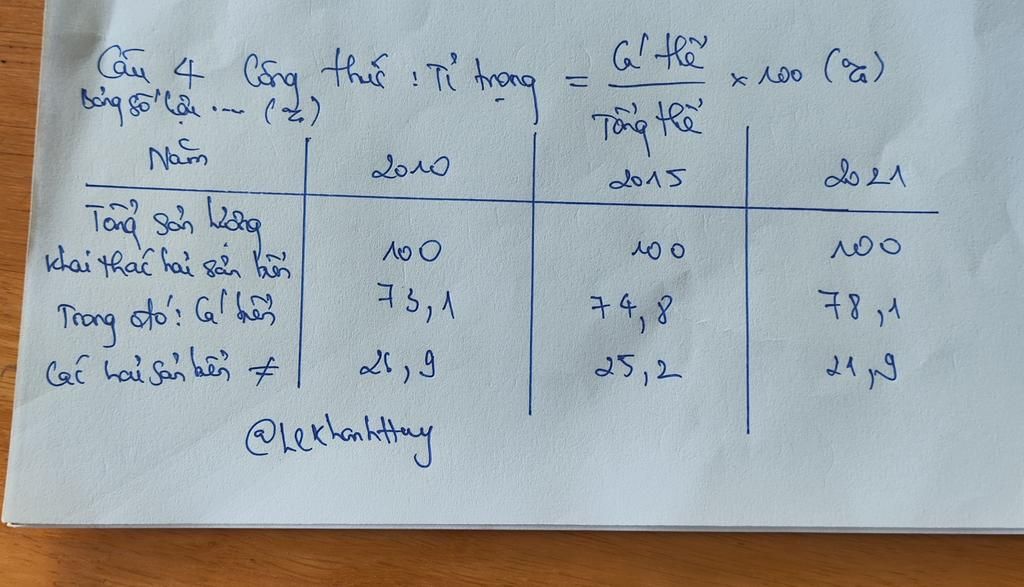 Câu 4 Công thức : Tỉ trọng = Cá thể / Tổng thể × 100 (%)
Bảng số liệu .... (%)
Năm 2010 2015 2021
Tổng sản lượng
khai thác hải sản biển 100 100 100
Trong đó: Cá biển 73,1 74,8 78,1
Các hải sản biển ≠ 26,9 25,2 21,9
@LeKhanhHuy